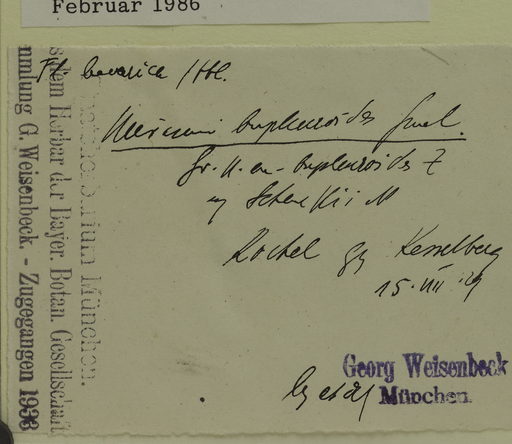 Februar 1986
Fl. bavarica Hbl.
Hieracium bupleuroides Gmel.
Gr. U. eu-bupleuroides Z
Schenkii
Kochel Kesselberg
15. VIII. 29
Georg Weisenbeck
München.
Staatsherbarium München.
s dem Herbar der Bayer. Botan. Gesellschaft
mmlung G. Weisenbeck - Zugegangen 1933